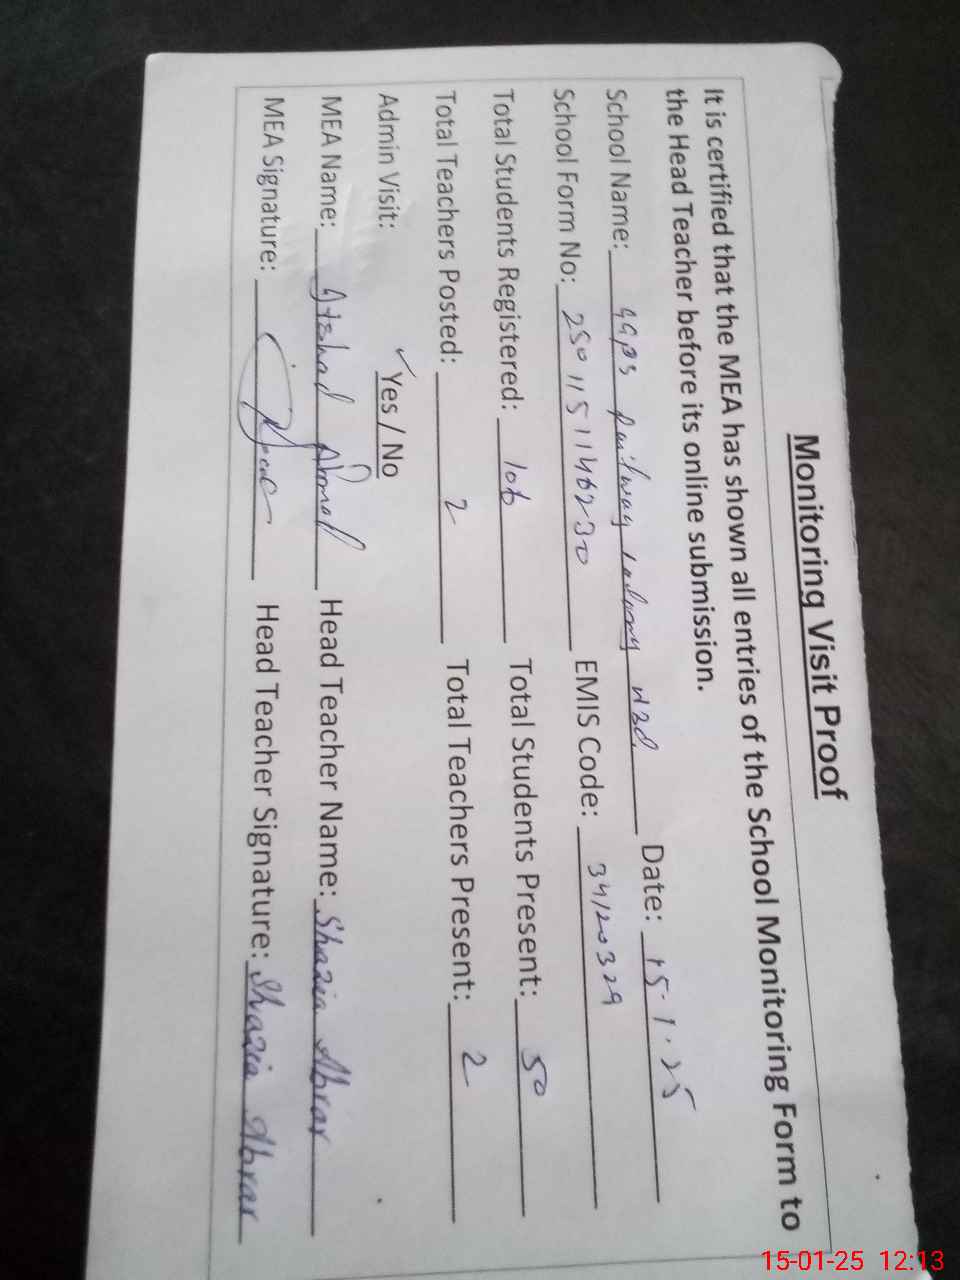 Monitoring Visit Proof
It is certified that the MEA has shown all entries of the School Monitoring Form to
the Head Teacher before its online submission.
School Name: GGPS Railway Date: 15.1.25
School Form No: EMIS Code: 34120329
Total Students Registered: 106 Total Students Present: 50
Total Teachers Posted: 2 Total Teachers Present: 2
Admin Visit: ✓ Yes / No
MEA Name: Ahmad Head Teacher Name: Shazia Abrar
MEA Signature: Head Teacher Signature: Shazia Abrar
15-01-25 12:13